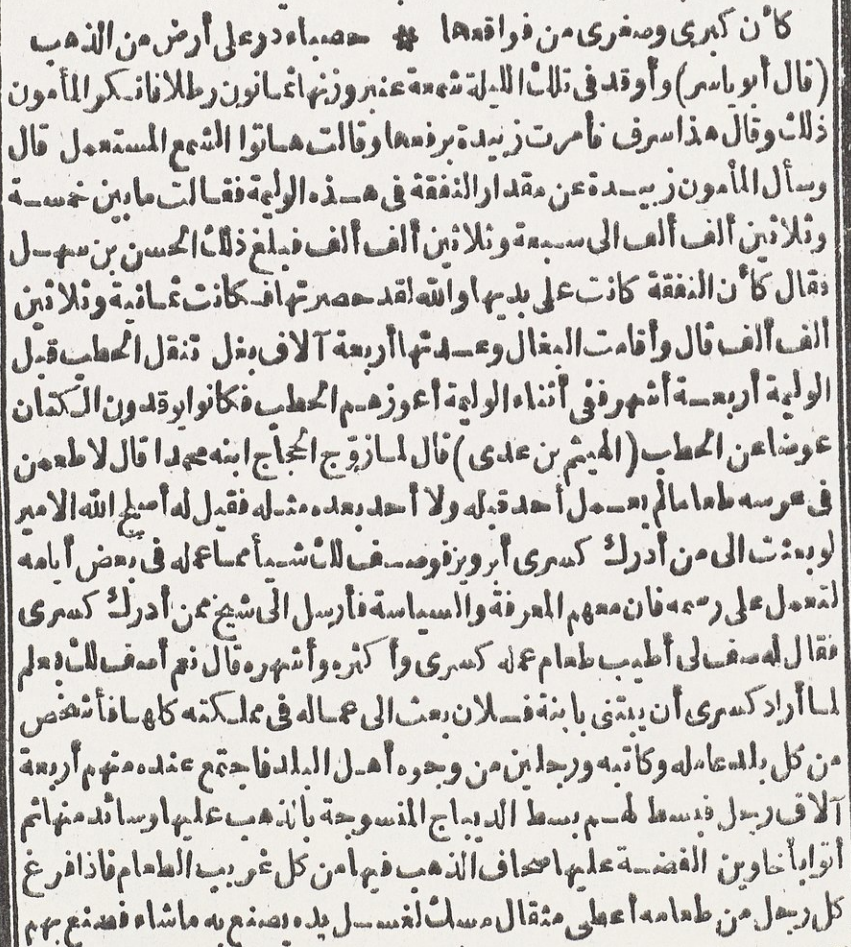 كأن كبرى وصغرى من فواقعها # حصباء در على أرض من الذهب
(قال أبو ياسر) وأوقد فى تلك الليلة شمعة عنبر وزنها ثمانون رطلا فانكر المأمون
ذلك وقال هذا سرف فأمرت زبيدة برفعها وقالت هاتوا الشمع المستعمل قال
وسأل المأمون زبيدة عن مقدار النفقة فى هذه الوليمة فقالت ما بين خمسة
وثلاثين ألف ألف الى سبعة وثلاثين ألف ألف فبلغ ذلك الحسن بن سهل
فقال كأن النفقة كانت على يديها والله لقد حصرتها فكانت ثمانية وثلاثين
ألف ألف قال وأقامت البغال وعدتها أربعة آلاف بغل تنقل الحطب قبل
الوليمة أربعة أشهر ففى أثناء الوليمة أعوزهم الحطب فكانوا يوقدون الكتان
عوضا عن الحطب (الهيثم بن عدى) قال لما زوّج الحجاج ابنه محمدا قال لاطعمن
فى عرسه طعاما لم يعمل أحد قبله ولا أحد بعده مثله فقيل له أصلح الله الامير
لو بعثت الى من أدرك كسرى أبرويز فوصف لك شيأ مما عمله فى بعض أيامه
لتعمل على رسمه فان معهم المعرفة والسياسة فأرسل الى شيخ ممن أدرك كسرى
فقال له صف لى أطيب طعام عمله كسرى وأكثره وأشهره قال نعم أصف لك بعلم
لما أراد كسرى أن يبتنى بابنة فلان بعث الى عماله فى مملكته كلها فأشخص
من كل بلد عامله وكاتبه ورجلين من وجوه أهل البلد فاجتمع عنده منهم أربعة
آلاف رجل فبسط لهم بسط الديباج المنسوجة بالذهب عليها وسائد منها ثم
أتوا بأخاوين الفضة عليها صحاف الذهب فيها من كل غريب الطعام فاذا فرغ
كل رجل من طعامه أعطى مثقال مسك لغسل يده يصنع به ما شاء فصنع بهم